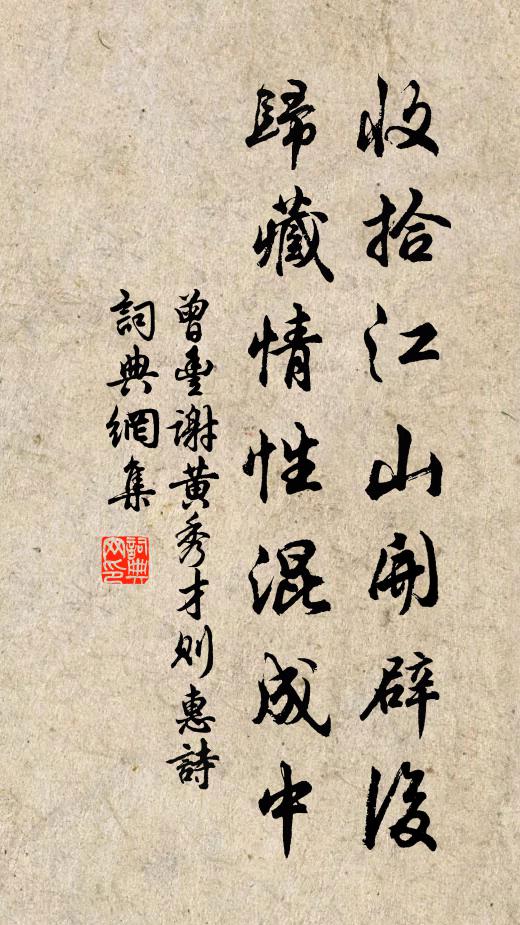 收拾江山開辟後
歸藏情性混成中
曾豐謝黃秀才則惠詩
詞典網集
詞典网印